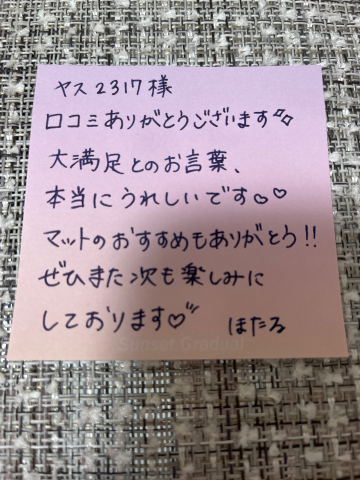 ヤス2317様
口コミありがとうございます✨
大満足とのお言葉、
本当にうれしいです♡♡
マットのおすすめもありがとう!!
ぜひまた次も楽しみに
しております♡
ほたる
Sunset Gradual